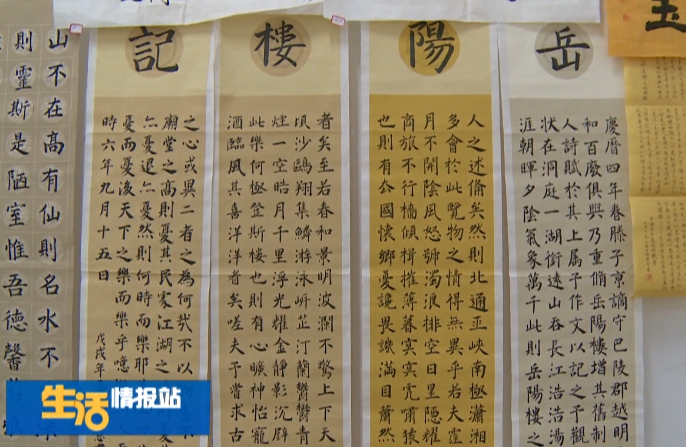 岳
慶曆四年春滕子京謫守巴陵郡越明
和百廢俱興乃重脩岳陽樓增其舊制
人詩賦於其上屬予作文以記之予觀
狀在洞庭一湖銜遠山吞長江浩浩湯
涯朝暉夕陰氣象萬千此則岳陽樓之
陽
人之述備矣然則北通巫峽南極瀟湘
多會於此覽物之情得無異乎若夫霪
月不開陰風怒號濁浪排空日星隱耀
商旅不行檣傾楫摧薄暮冥冥虎嘯猿
也則有去國懷鄉憂讒畏譏滿目蕭然
樓
者矣至若春和景明波瀾不驚上下天
頃沙鷗翔集錦鱗游泳岸芷汀蘭鬱鬱青
煙一空皓月千里浮光耀金靜影沉璧
此樂何極登斯樓也則有心曠神怡寵
酒臨風其喜洋洋者矣嗟夫予嘗求古
記
之心或異二者之為何哉不以
廟堂之高則憂其民家江湖之
亦憂退亦憂然則何時而樂耶
憂而憂後天下之樂而樂乎噫
時六年九月十五日
戊戌年
山不在高有仙則名水不
則靈斯是陋室惟吾德馨
生活情报站